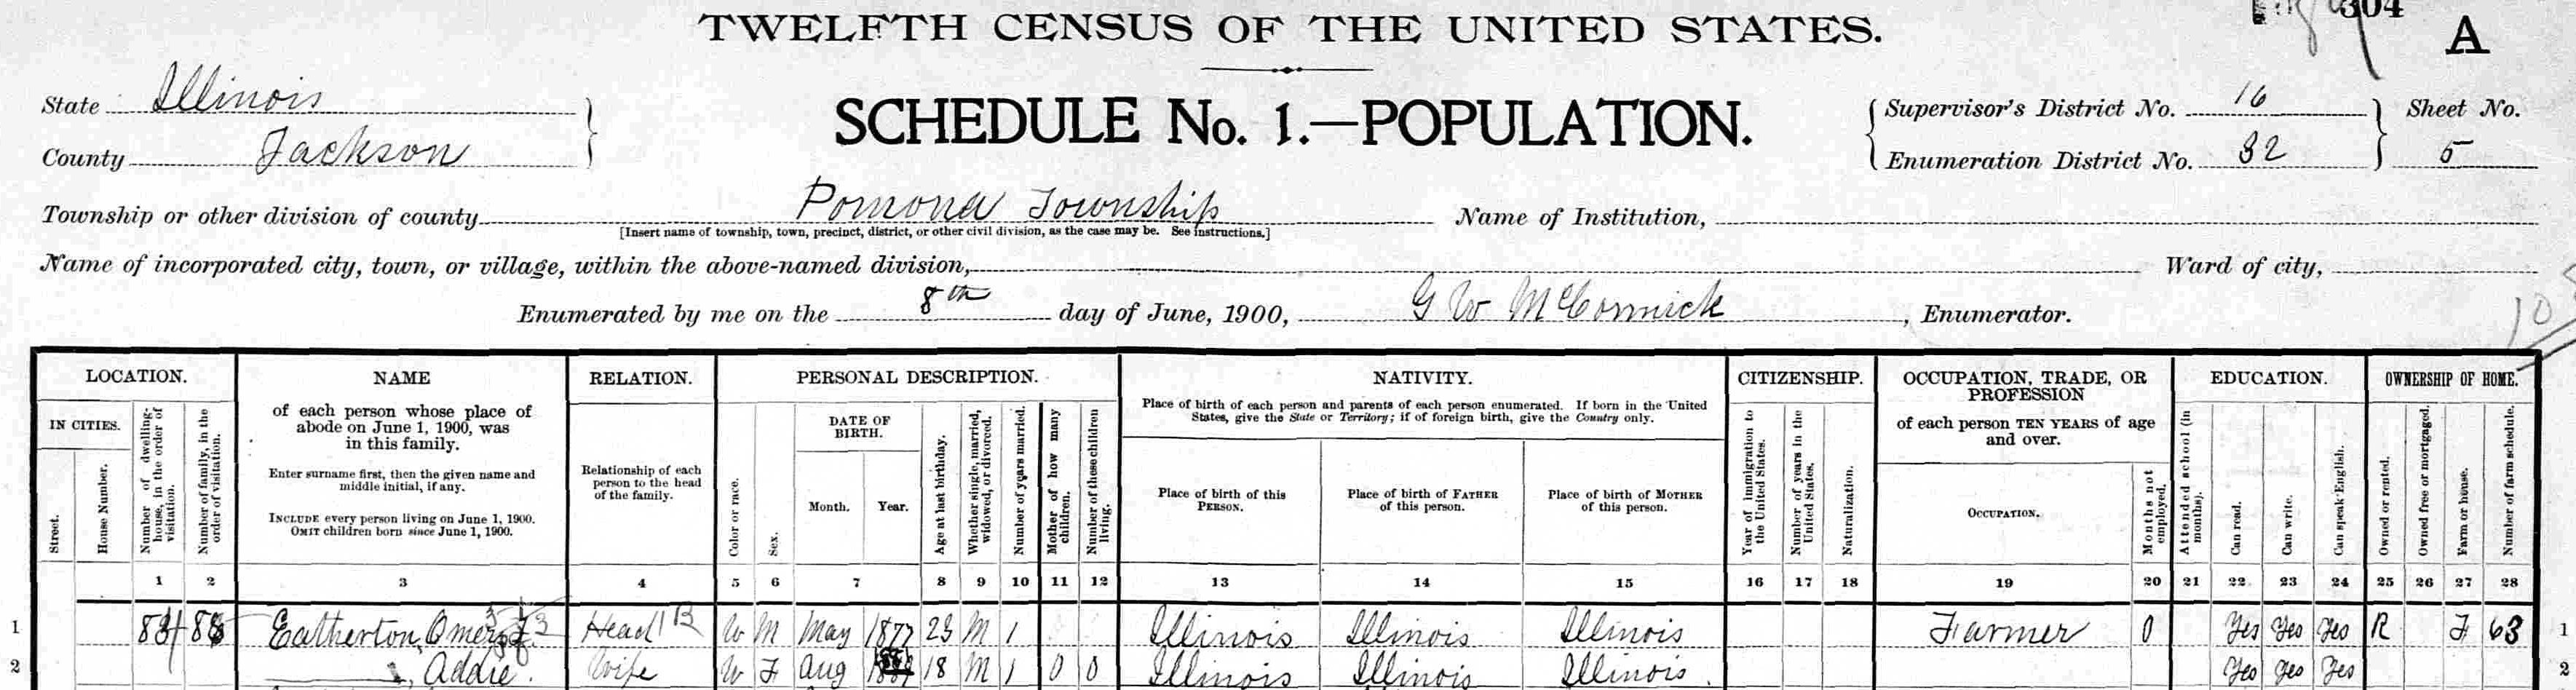 304
A
TWELFTH CENSUS OF THE UNITED STATES.
State Illinois
County Jackson
SCHEDULE No. 1.—POPULATION.
Supervisor's District No. 16
Enumeration District No. 32
Sheet No.
5
Township or other division of county Pomona Township
[Insert name of township, town, precinct, district, or other civil division, as the case may be. See instructions.]
Name of Institution,
Name of incorporated city, town, or village, within the above-named division,
Ward of city,
Enumerated by me on the 8th day of June, 1900, G W McCormick, Enumerator.
LOCATION.
IN CITIES.
Street.
House Number.
Number of dwelling-house, in the order of visitation.
Number of family, in the order of visitation.
NAME
of each person whose place of
abode on June 1, 1900, was
in this family.
Enter surname first, then the given name and
middle initial, if any.
INCLUDE every person living on June 1, 1900.
OMIT children born since June 1, 1900.
RELATION.
Relationship of each
person to the head
of the family.
PERSONAL DESCRIPTION.
Color or race.
Sex.
DATE OF
BIRTH.
Month.
Year.
Age at last birthday.
Whether single, married, widowed, or divorced.
Number of years married.
Mother of how many children.
Number of these children living.
NATIVITY.
Place of birth of each person and parents of each person enumerated. If born in the United
States, give the State or Territory; if of foreign birth, give the Country only.
Place of birth of this
PERSON.
Place of birth of FATHER
of this person.
Place of birth of MOTHER
of this person.
CITIZENSHIP.
Year of immigration to the United States.
Number of years in the United States.
Naturalization.
OCCUPATION, TRADE, OR
PROFESSION
of each person TEN YEARS of age
and over.
OCCUPATION.
Months not employed.
EDUCATION.
Attended school (in months).
Can read.
Can write.
Can speak English.
OWNERSHIP OF HOME.
Owned or rented.
Owned free or mortgaged.
Farm or house.
Number of farm schedule.
1 2 3 4 5 6 7 8 9 10 11 12 13 14 15 16 17 18 19 20 21 22 23 24 25 26 27 28
1 84 Eatherton, Omer Head W M May 1877 23 M 1 Illinois Illinois Illinois Farmer 0 Yes Yes Yes R F 63 1
2 , Addie. Wife W F Aug 18 M 1 0 0 Illinois Illinois Illinois. Yes Yes Yes 2